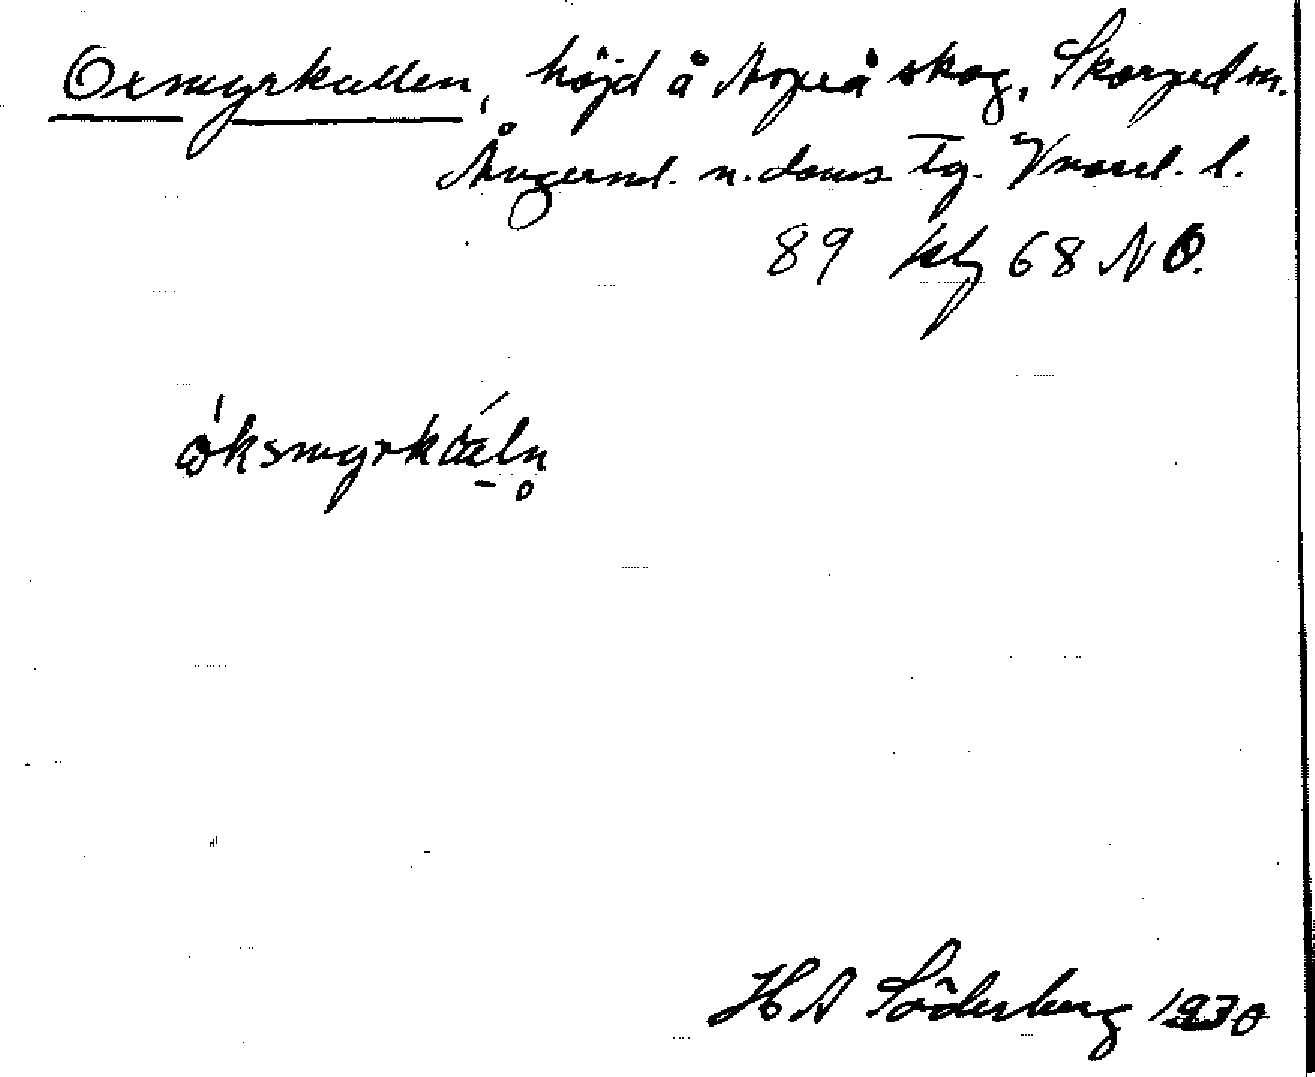 Oxmyrkallen, höjd å Aspeå skog, Skorped sn.
Ångerml. n. doms. Tg. Vnorrl. l.
89 kbl 68 NO.
øksmyrkaln̥
H A Söderberg 1930